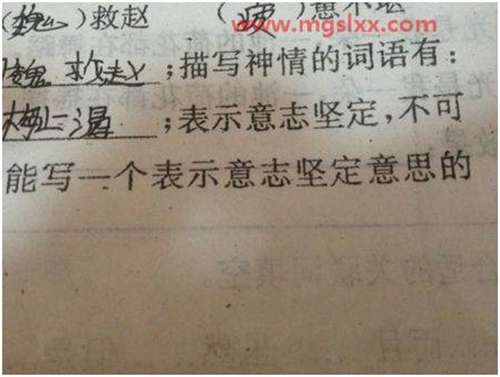 (魏)救赵 (疲)惫不堪
www.mgslxx.com
魏救赵;描写神情的词语有:
梅止渴;表示意志坚定,不可
能写一个表示意志坚定意思的